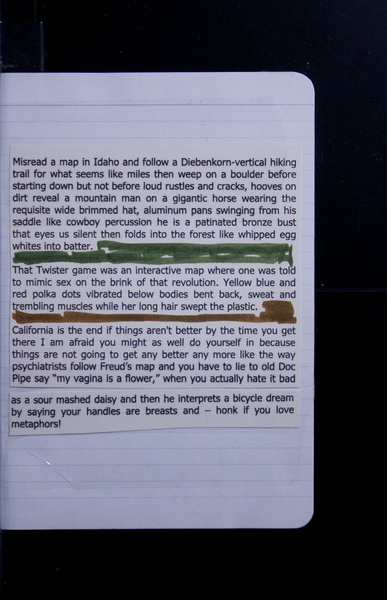 Misread a map in Idaho and follow a Diebenkorn-vertical hiking
trail for what seems like miles then weep on a boulder before
starting down but not before loud rustles and cracks, hooves on
dirt reveal a mountain man on a gigantic horse wearing the
requisite wide brimmed hat, aluminum pans swinging from his
saddle like cowboy percussion he is a patinated bronze bust
that eyes us silent then folds into the forest like whipped egg
whites into batter.
That Twister game was an interactive map where one was told
to mimic sex on the brink of that revolution. Yellow blue and
red polka dots vibrated below bodies bent back, sweat and
trembling muscles while her long hair swept the plastic.
California is the end if things aren't better by the time you get
there I am afraid you might as well do yourself in because
things are not going to get any better any more like the way
psychiatrists follow Freud's map and you have to lie to old Doc
Pipe say "my vagina is a flower," when you actually hate it bad
as a sour mashed daisy and then he interprets a bicycle dream
by saying your handles are breasts and – honk if you love
metaphors!